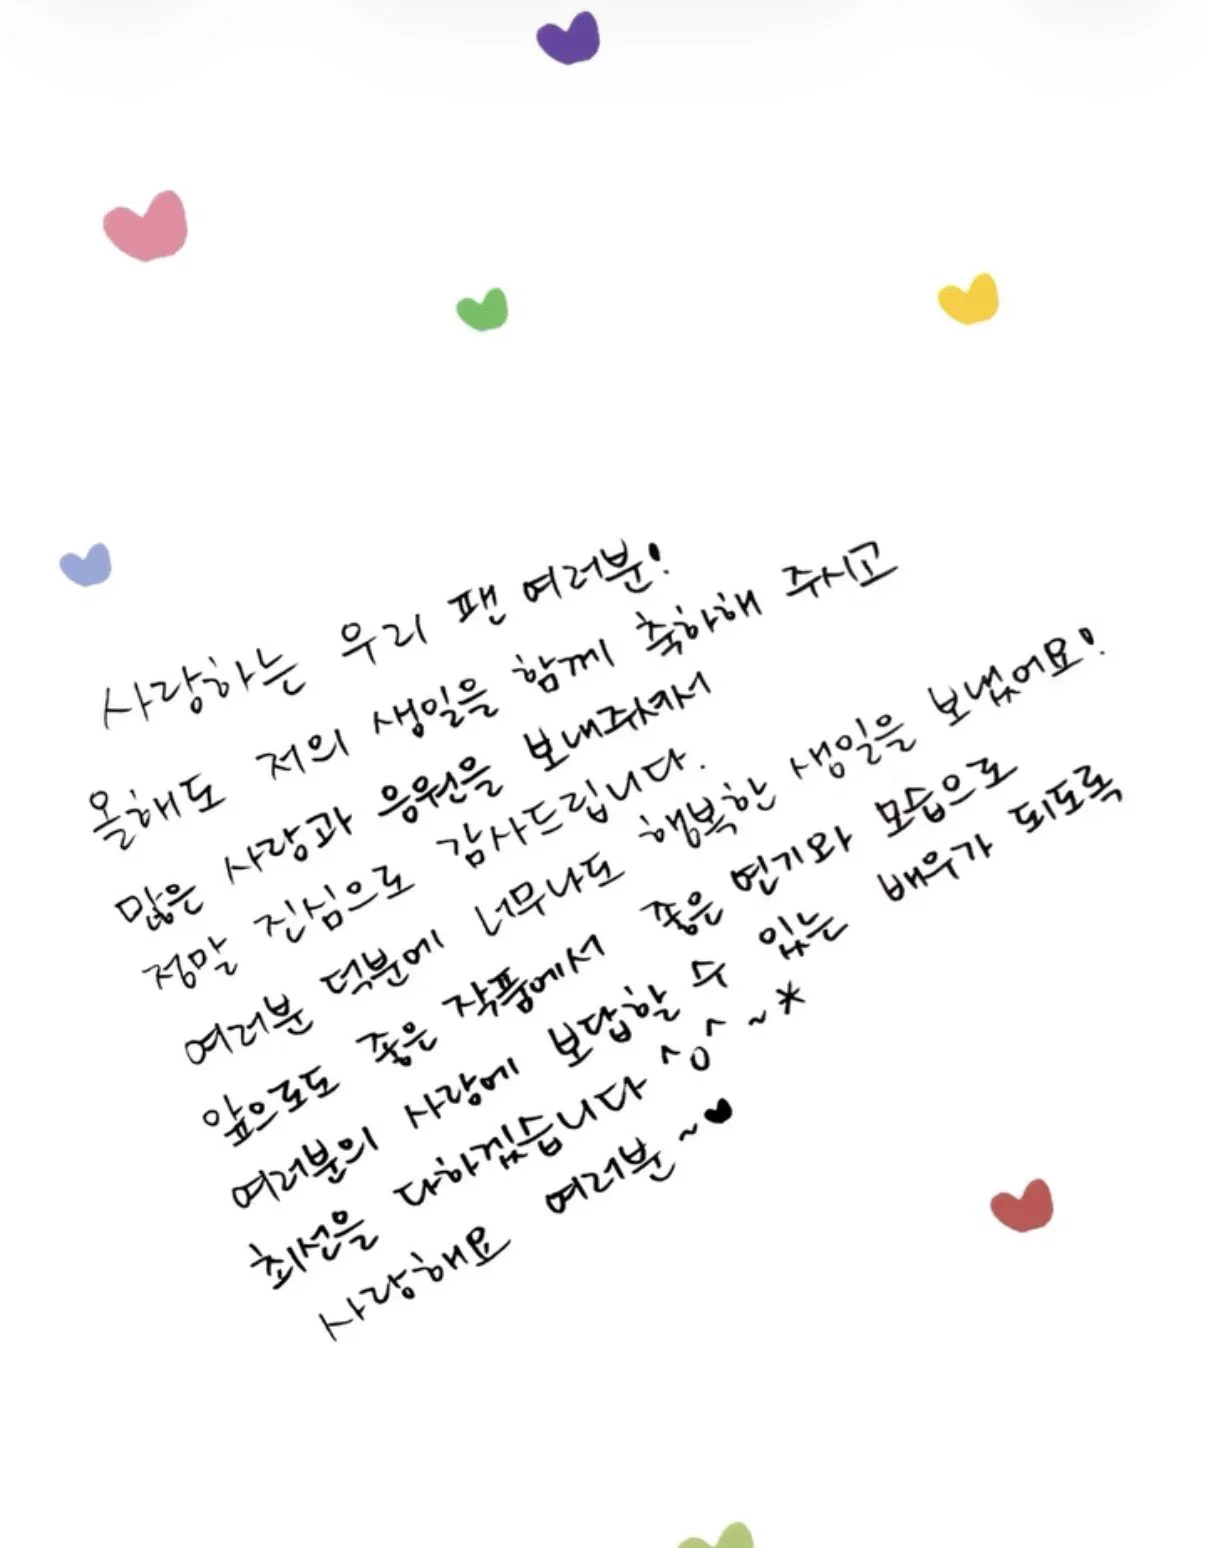 사랑하는 우리 팬 여러분!
올해도 저의 생일을 함께 축하해 주시고
많은 사랑과 응원을 보내주셔서
정말 진심으로 감사드립니다.
여러분 덕분에 너무나도 행복한 생일을 보냈어요!
앞으로도 좋은 작품에서 좋은 연기와 모습으로
여러분의 사랑에 보답할 수 있는 배우가 되도록
최선을 다하겠습니다 ^o^~*
사랑해요 여러분~♥